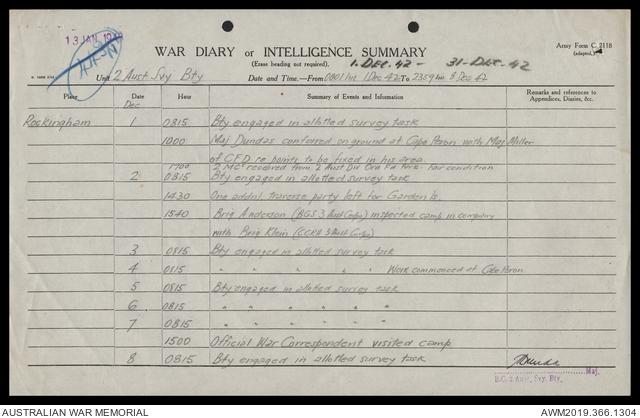 13 JAN 1943
WAR DIARY or INTELLIGENCE SUMMARY
Army Form C 2118
(adapted)
(Erase heading not required).
1. DEC. 42 - 31-DEC. 42
Unit 2 Aust Svy Bty
Date and Time.—From 0801 hr 1 Dec 42 To 2359 hr 8 Dec 42
Place Date Hour Summary of Events and Information Remarks and references to Appendices, Diaries, &c.
Dec
Rockingham 1 0815 Bty engaged in allotted survey task
1000 Maj Dundas conferred on ground at Cape Peron with Maj Miller
of CFD re points to be fixed in his area.
1700 2 MC received from 2 Aust Div Ord Fd Park. Fair condition
2 0815 Bty engaged in allotted survey task
1430 One addnl. traverse party left for Garden Is.
1540 Brig Anderson (BGS 3 Aust Corps) inspected camp in company
with Brig Klein (CCRA 3 Aust Corps)
3 0815 Bty engaged in allotted survey task
4 0815 " " " " " Work commenced at Cape Peron
5 0815 Bty engaged in allotted survey task
6 0815 " " " " " "
7 0815 " " " " " "
1500 Official War Correspondent visited camp
8 0815 Bty engaged in allotted survey task
Maj.
B.C. 2 Aust. Svy. Bty.
AUSTRALIAN WAR MEMORIAL
AWM2019.366.1304